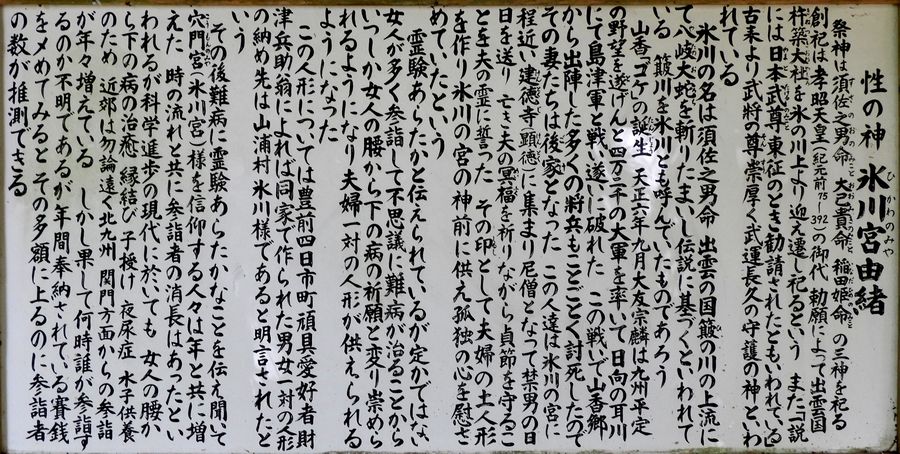 性の神 氷川宮由緒
ひかわのみや
祭神は須佐之男命 大己貴命 稲田姫命 の三神を祀る
創祀は孝昭天皇(紀元前475〜392)の御代 勅願によって出雲国
杵築大社を氷の川上より迎え遷し祀るという また「説
には日本武尊東征のとき勧請されたともいわれている」
古来より武将の尊崇厚く武運長久の守護の神といわ
れている
氷川の名は須佐之男命 出雲の国簸の川の上流に
て八岐大蛇を斬りたまいし伝説に基づくといわれて
簸川を氷川とも呼んでいたものであろう
山香「ゴケの誕生」天正六年九月大友宗麟は九州平定
の野望を遂げんと四万三千の大軍を率いて日向の耳川
にて島津軍と戦い遂いに破れた この戦いで山香郷
から出陣した多くの将兵もことごとく討死したので
その妻たちは後家となった この人達は氷川の宮に
程近い建徳寺(顕徳)に集まり尼僧となって禁男の日
日を送り 亡き夫の冥福を祈りながら貞節を守るこ
とを夫の霊に誓った その印として夫婦の土人形
を作り氷川の宮の神前に供え孤独の心を慰さ
めていたという
霊験あらたかと伝えられているが定かではない
女人が多く参詣して不思議に難病が治ることから
いつしか女人の腰から下の病の祈願と変り崇めら
れるようになり夫婦一対の人形が供えられる
ようになった
この人形については豊前四日市町頑具愛好者財
津兵助翁によれば同家で作られた男女一対の人形
の納め先は山浦村氷川様であると明言されたと
いう
その後難病に霊験あらたかなことを伝え聞いて
穴門宮(氷川宮)様を信仰する人々は年と共に増
えた 時の流れと共に参詣者の消長はあったとい
われるが科学進歩の現代に於いても 女人の腰か
ら下の病の治癒 縁結び 子授け 夜尿症 水子供養
のため 近郊は勿論遠く北九州 関門方面からの参詣
が年々増えている しかし果して何時誰が参詣す
るのか不明であるが年間奉納されている賽銭
を〆めてみると その多額に上るのに参詣者
の数が推測できる